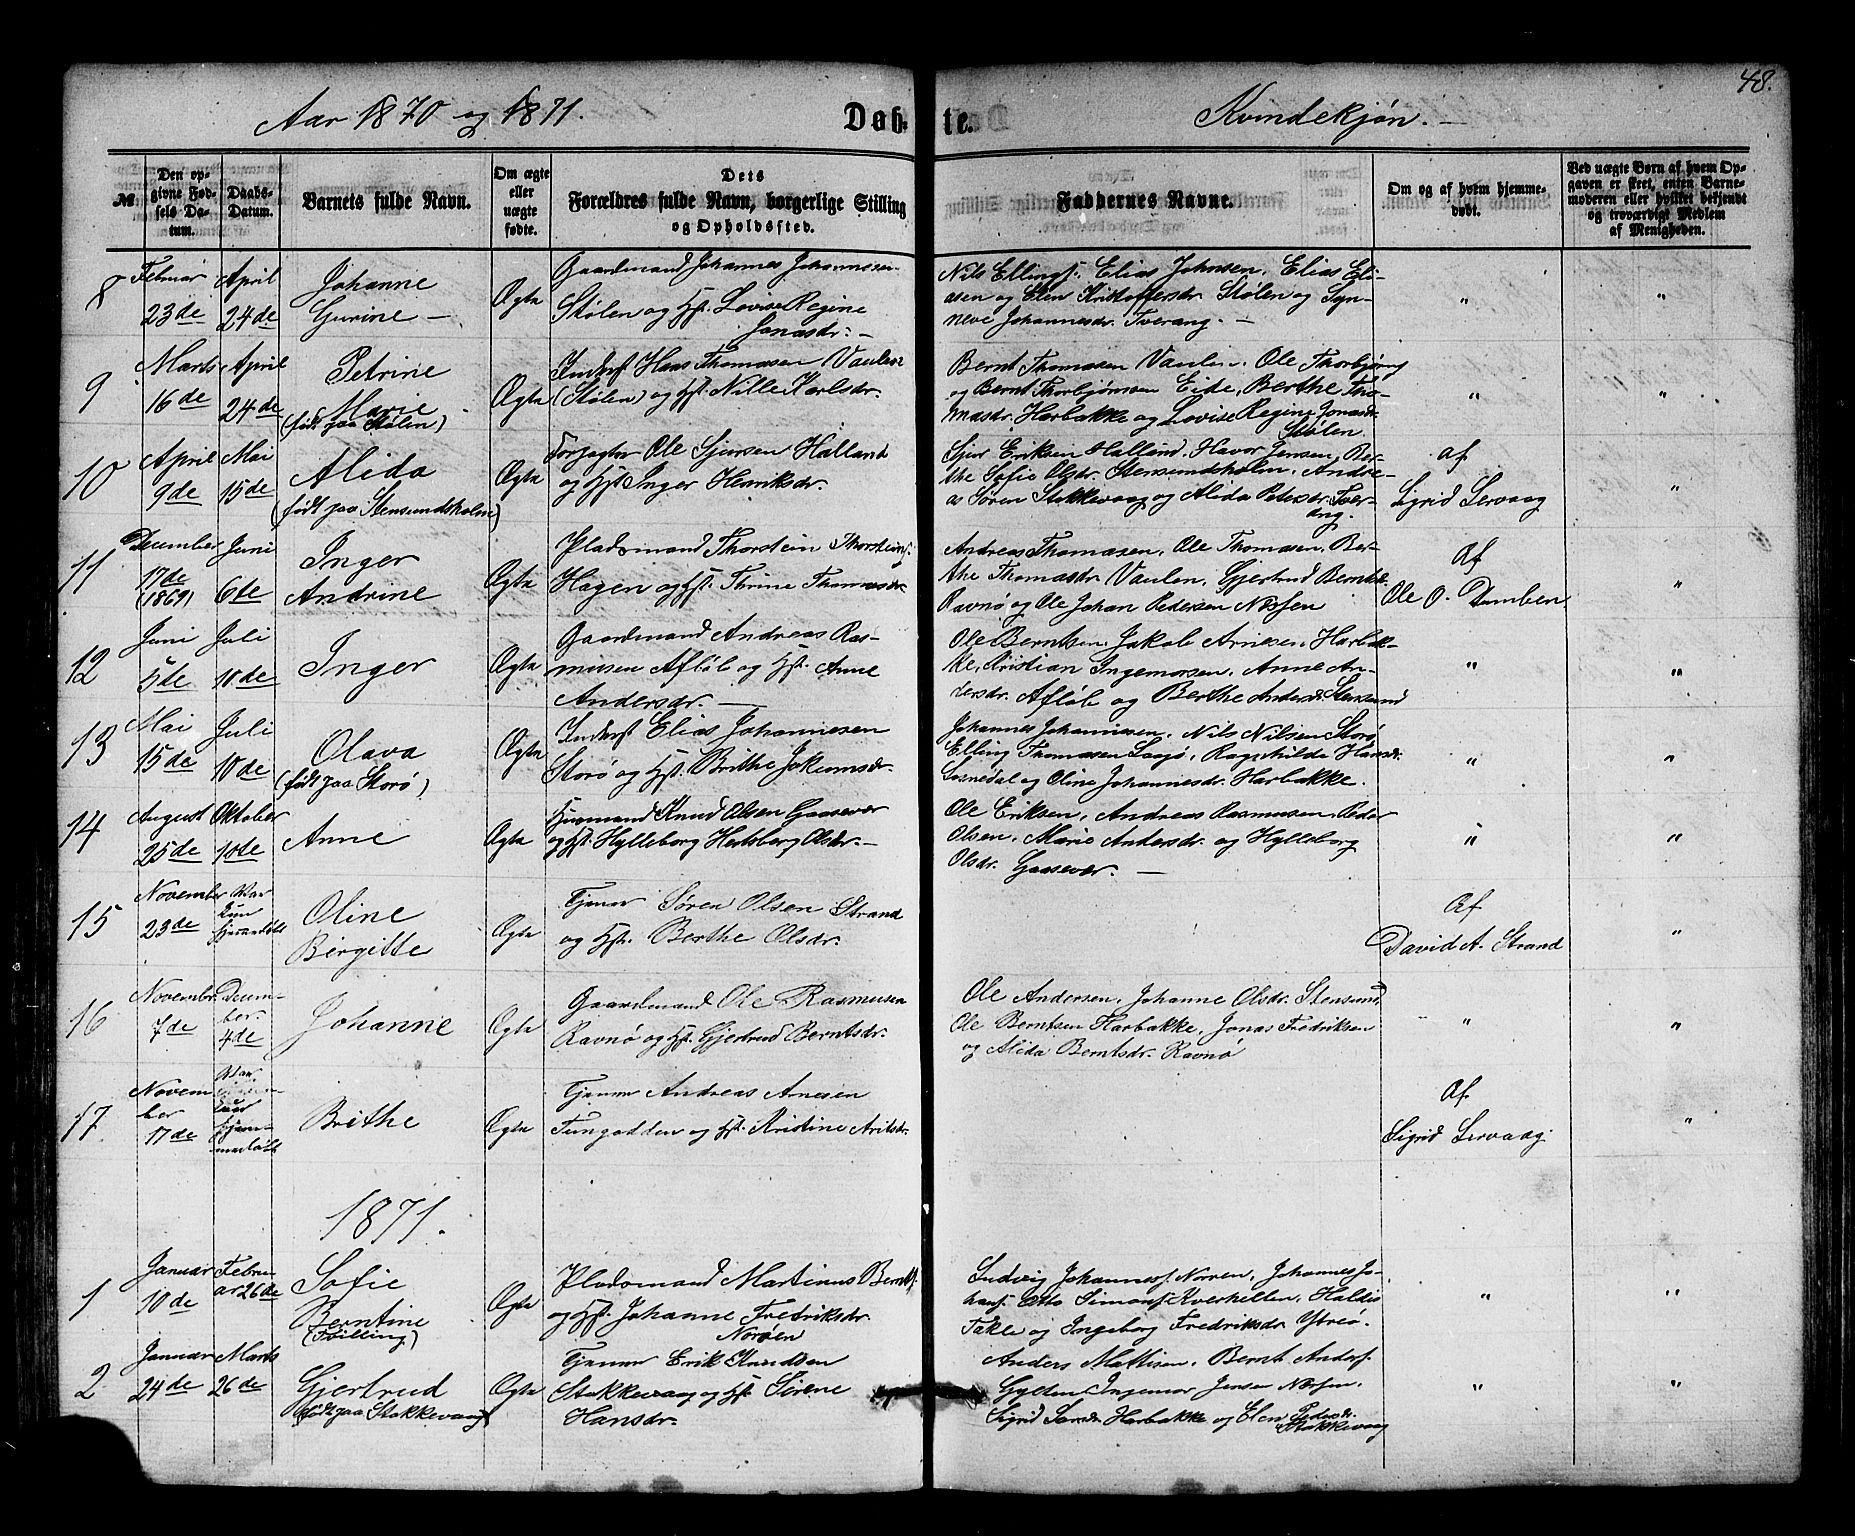 48.
Aar 1870 og 1871. Døb-te. Kvindekjøn. —
№
Den opgivne Fødsels Datum.
Daabs-Datum.
Barnets fulde Navn.
Om ægte eller uægte fødte.
Dets Forældres fulde Navn, borgerlige Stilling og Opholdssted.
Faddernes Navne.
Om og af hvem hjemmedøbt.
Ved uægte Børn af hvem Opgaven er skeet, enten Barnemoderen eller hvilket bekjendt og troværdigt Medlem af Menigheden.
8 Februar 23de April 24de
Johanne
Gurine —
Ægte
Gaardmand Johannes Johannesen
Stølen og Hst. Lovise Regine
Jonasdr. —
Nils Ellingf. Elias Johnsen. Elias Eli-
asen og Elen Kristoffersdr. Stølen og Syn-
neve Johannesdr. Tverang. —
" "
9 Marts 16de April 24de
Petrine
Marie
(født paa Stølen)
Ægte
Inderst Hans Thomasen Vaulen
(Stølen) og Hst. Nille Karlsdr.
Bernt Thomasen Vaulen. Ole Thorbjørns
og Bernt Thorbjørnsen Eide, Berthe Tho-
masdr. Harbakke og Lovise Regine Jonasdr.
Stølen.
" "
10 April 9de Mai 15de
Alida
(født paa Stensundsholm)
Ægte
Forpagter Ole Sjursen Halland
og Hst. Inger Henriksdr.
Sjur Eriksen Halland. Havor Jensen, Ber-
the Sofie Olsdr. Stensundsholm. Andre-
as Søren Stokkevaag og Alida Petersdr. Tver-
ang.
af
Sigrid Lervaag
"
11 December 17de (1869) Juni 6de
Inger
Andrine
Ægte
Pladsmand Thorstein Thorsteins.
Hagen og Hst. Thrine Thomasdr.
Andreas Thomasen. Ole Thomasen. Ber-
the Thomasdr. Vaulen. Gjertrud Berntsd.
Ravnø og Ole Johan Pedersen Nissen
Af
Ole O. Dumben
"
12 Juni 5de Juli 10de
Inger
Ægte
Gaardmand Andreas Ras-
musen Afløb og Hst. Anne
Andersdr. —
Ole Berntsen, Jakob Arnesen. Harbak-
ke, Kristian Ingemorsen. Anne An-
dersdr. Afløb og Berthe Andersd. Stensund
" "
13 Mai 15de Juli 10de
Olava
(født paa Storø)
Ægte
Inderst Elias Johannesen
Storø og Hst. Brithe Jokumsdr.
Johannes Johannesen. Nils Nilsen Storø
Elling Thomasen Ragnhilda Hansdr.
og Oline Johannesdr. Harbakke.
" "
14 August 25de Oktober 10de
Anne
Ægte
Husmand Knud Olsen Gaasevær
og Hst. Hylleborg Hertsberg Olsdr. —
Ole Eriksen, Andreas Rasmusen, Peder
Olsen. Marie Andersdr. og Hylleborg
Olsdr. Gaasevær. —
" "
15 November 23de Var
kun
hjemmedøbt
Oline
Birgitte
Ægte
Tjener Søren Olsen Strand
og Hst. Berthe Olsdr.
Af
David A. Strand
"
16 November 7de Decem-
ber. 4de
Johanne
Ægte
Gaardmand Ole Rasmusen
Ravnø og Hst. Gjertrud Berntsdr.
Ole Andersen, Johanne Olsdr. Stensund,
Ole Berntsen Harbakke, Jonas Fredriksen
og Alida Berntsdr. Ravnø
" "
17. Novem-
ber 17de Var
hjem-
medøbt
Brithe
Ægte
Tjener Andreas Arnesen
Tungodden og Hst. Kristine Aritsdr.
Af
Sigrid Lervaag.
"
1871.
1 Januar 10de Febru-
ar 26de
Sofie
Berntine
(Tvilling)
Ægte
Pladsmand Martinus Berntf.
og Hst. Johanne Fredriksdr.
Norøen
Ludvig Johannesf. Norøen, Johannes Jo-
hansf. Otto Simonsf. Kverhellen. Haldis
Takle og Ingeborg Fredriksdr. Ytreø.
" "
2 Januar 24de Marts 26de
Gjertrud
(født paa Stokkevaag)
Ægte
Tjener Erik Knudsen
Stokkevaag og Hst. Sørene
Hansdr.
Anders Mattisen. Bernt Andersf.
Gylten, Ingemor Jensen Nissen.
Sigrid Harbakke og Elen Pedersdr.
Stokkevaag
" "